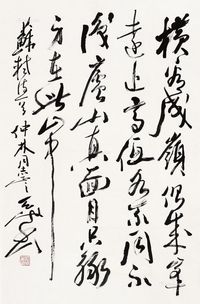 橫看成嶺側成峯
遠近高低各不同不
識廬山真面目只緣
身在此山中
蘇軾詩 仲林同志